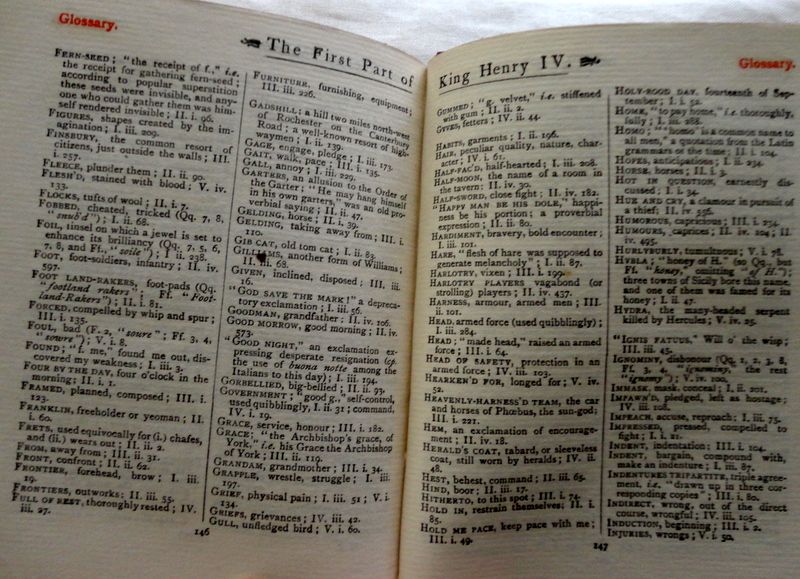 Glossary.
The First Part of
FERN-SEED; "the receipt of f.," i.e.
the receipt for gathering fern-seed;
according to popular superstition
these seeds were invisible, and any-
one who could gather them was him-
self rendered invisible; II. i. 96.
FIGURES, shapes created by the im-
agination; I. iii. 209.
FINSBURY, the common resort of
citizens, just outside the walls; III.
i. 257.
FLEECE, plunder them; II. ii. 90.
FLESH'D, stained with blood; V. iv.
133.
FLOCKS, tufts of wool; II. i. 7.
FOBBED, cheated, tricked (Qq. 7, 8,
"snub'd"); I. ii. 68.
FOIL, tinsel on which a jewel is set to
enhance its brilliancy (Qq. 7, 5, 6,
7, 8, and Ff., "soile"); I. ii. 238.
FOOT, foot-soldiers, infantry; II. iv.
597.
FOOT LAND-RAKERS, foot-pads (Qq.
"footland rakers"; Ff. "Foot-
land-Rakers"); II. i. 81.
FORCED, compelled by whip and spur;
III. i. 135.
FOUL, bad (F. 2, "soure"; Ff. 3, 4,
"sowre"); V. i. 8.
FOUND; "f. me," found me out, dis-
covered my weakness; I. iii. 3.
FOUR BY THE DAY, four o'clock in the
morning; II. i. 1.
FRAMED, planned, composed; III. i.
123.
FRANKLIN, freeholder or yeoman; II.
i. 60.
FRETS, used equivocally for (i.) chafes,
and (ii.) wears out; II. ii. 2.
FROM, away from; III. ii. 31.
FRONT, confront; II. ii. 62.
FRONTIER, forehead, brow; I. iii.
19.
FRONTIERS, outworks; II. iii. 55.
FULL OF REST, thoroughly rested; IV.
iii. 27.
FURNITURE, furnishing, equipment;
III. iii. 226.
GADSHILL; a hill two miles north-west
of Rochester, on the Canterbury
Road; a well-known resort of high-
waymen; I. ii. 139.
GAGE, engage, pledge; I. iii. 173.
GAIT, walk, pace; III. i. 135.
GALL, annoy; I. iii. 229.
GARTERS, an allusion to the Order of
the Garter; "He may hang himself
in his own garters," was an old pro-
verbial saying; II. ii. 47.
GELDING, horse; II. i. 39.
GELDING, taking away from; III. i.
110.
GIB CAT, old tom cat; I. ii. 83.
GILLIAMS, another form of Williams;
II. iii. 68.
GIVEN, inclined, disposed; III. iii.
16.
"GOD SAVE THE MARK!" a depreca-
tory exclamation; I. iii. 56.
GOODMAN, grandfather; II. iv. 106.
GOOD MORROW, good morning; II. iv.
573.
"GOOD NIGHT," an exclamation ex-
pressing desperate resignation (cp.
the use of buona notte among the
Italians to this day); I. iii. 194.
GORBELLIED, big-bellied; II. ii. 93.
GOVERNMENT; "good g.," self-control,
used quibblingly, I. ii. 31; command,
IV. i. 19.
GRACE, service, honour; III. i. 182.
GRACE; "the Archbishop's grace, of
York," i.e. his Grace the Archbishop
of York; III. ii. 119.
GRANDAM, grandmother; III. i. 34.
GRAPPLE, wrestle, struggle; I. iii.
197.
GRIEF, physical pain; I. iii. 51; V. i.
134.
GRIEFS, grievances; IV. iii. 42.
GULL, unfledged bird; V. i. 60.
146
King Henry IV.
Glossary.
GUMMED; "g. velvet," i.e. stiffened
with gum; II. ii. 2.
GYVES, fetters; IV. ii. 44.
HABITS, garments; I. ii. 196.
HAIR, peculiar quality, nature, char-
acter; IV. i. 61.
HALF-FAC'D, half-hearted; I. iii. 208.
HALF-MOON, the name of a room in
the tavern: II. iv. 30.
HALF-SWORD, close fight; II. iv. 182.
"HAPPY MAN BE HIS DOLE," happi-
ness be his portion; a proverbial
expression; II. ii. 80.
HARDIMENT, bravery, bold encounter;
I. iii. 101.
HARE, "flesh of hare was supposed to
generate melancholy"; I. ii. 87.
HARLOTRY, vixen; III. i. 199.
HARLOTRY PLAYERS vagabond (or
strolling) players; II. iv. 437.
HARNESS, armour, armed men; III.
ii. 101.
HEAD, armed force (used quibblingly);
I. iii. 284.
HEAD; "made head," raised an armed
force; III. i. 64.
HEAD OF SAFETY, protection in an
armed force; IV. iii. 103.
HEARKEN'D FOR, longed for; V. iv.
52.
HEAVENLY-HARNESS'D TEAM, the car
and horses of Phœbus, the sun-god;
III. i. 221.
HEM, an exclamation of encourage-
ment; II. iv. 18.
HERALD'S COAT, tabard, or sleeveless
coat, still worn by heralds; IV. ii.
48.
HEST, behest, command; II. iii. 65.
HIND, boor; II. iii. 17.
HITHERTO, to this spot; III. i. 74.
HOLD IN, restrain themselves; II. i.
85.
HOLD ME PACE, keep pace with me;
III. i. 49.
HOLY-ROOD DAY, fourteenth of Sep-
tember; I. i. 52.
HOME, "to pay home," i.e. thoroughly,
fully; I. iii. 288.
HOMO; "'homo' is a common name to
all men," a quotation from the Latin
grammars of the time; II. i. 104.
HOPES, anticipations; I. ii. 234.
HORSE, horses; II. i. 3.
HOT IN QUESTION, earnestly dis-
cussed; I. i. 34.
HUE AND CRY, a clamour in pursuit of
a thief; II. iv. 556.
HUMOROUS, capricious; III. i. 234.
HUMOURS, caprices; II. iv. 104; II.
iv. 495.
HURLYBURLY, tumultuous; V. i. 78.
HYBLA; "honey of H." (so Qq., but
Ff. "honey," omitting "of H.");
three towns of Sicily bore this name,
and one of them was famed for its
honey; I. ii. 47.
HYDRA, the many-headed serpent
killed by Hercules; V. iv. 25.
"IGNIS FATUUS," Will o' the wisp;
III. iii. 45.
IGNOMINY, dishonour (Qq. 1, 2, 3, 8,
Ff. 3, 4, "ignominy," the rest
"ignomy"); V. iv. 100.
IMMASK, mask, conceal; I. ii. 201.
IMPAWN'D, pledged, left as hostage;
IV. iii. 108.
IMPEACH, accuse, reproach; I. iii. 75.
IMPRESSED, pressed, compelled to
fight; I. i. 21.
INDENT, indentation; III. i. 104.
INDENT, bargain, compound with,
make an indenture; I. iii. 87.
INDENTURES TRIPARTITE, triple agree-
ment, i.e. "drawn up in three cor-
responding copies"; III. i. 80.
INDIRECT, wrong, out of the direct
course, wrongful; IV. iii. 105.
INDUCTION, beginning; III. i. 2.
INJURIES, wrongs; V. i. 50.
147